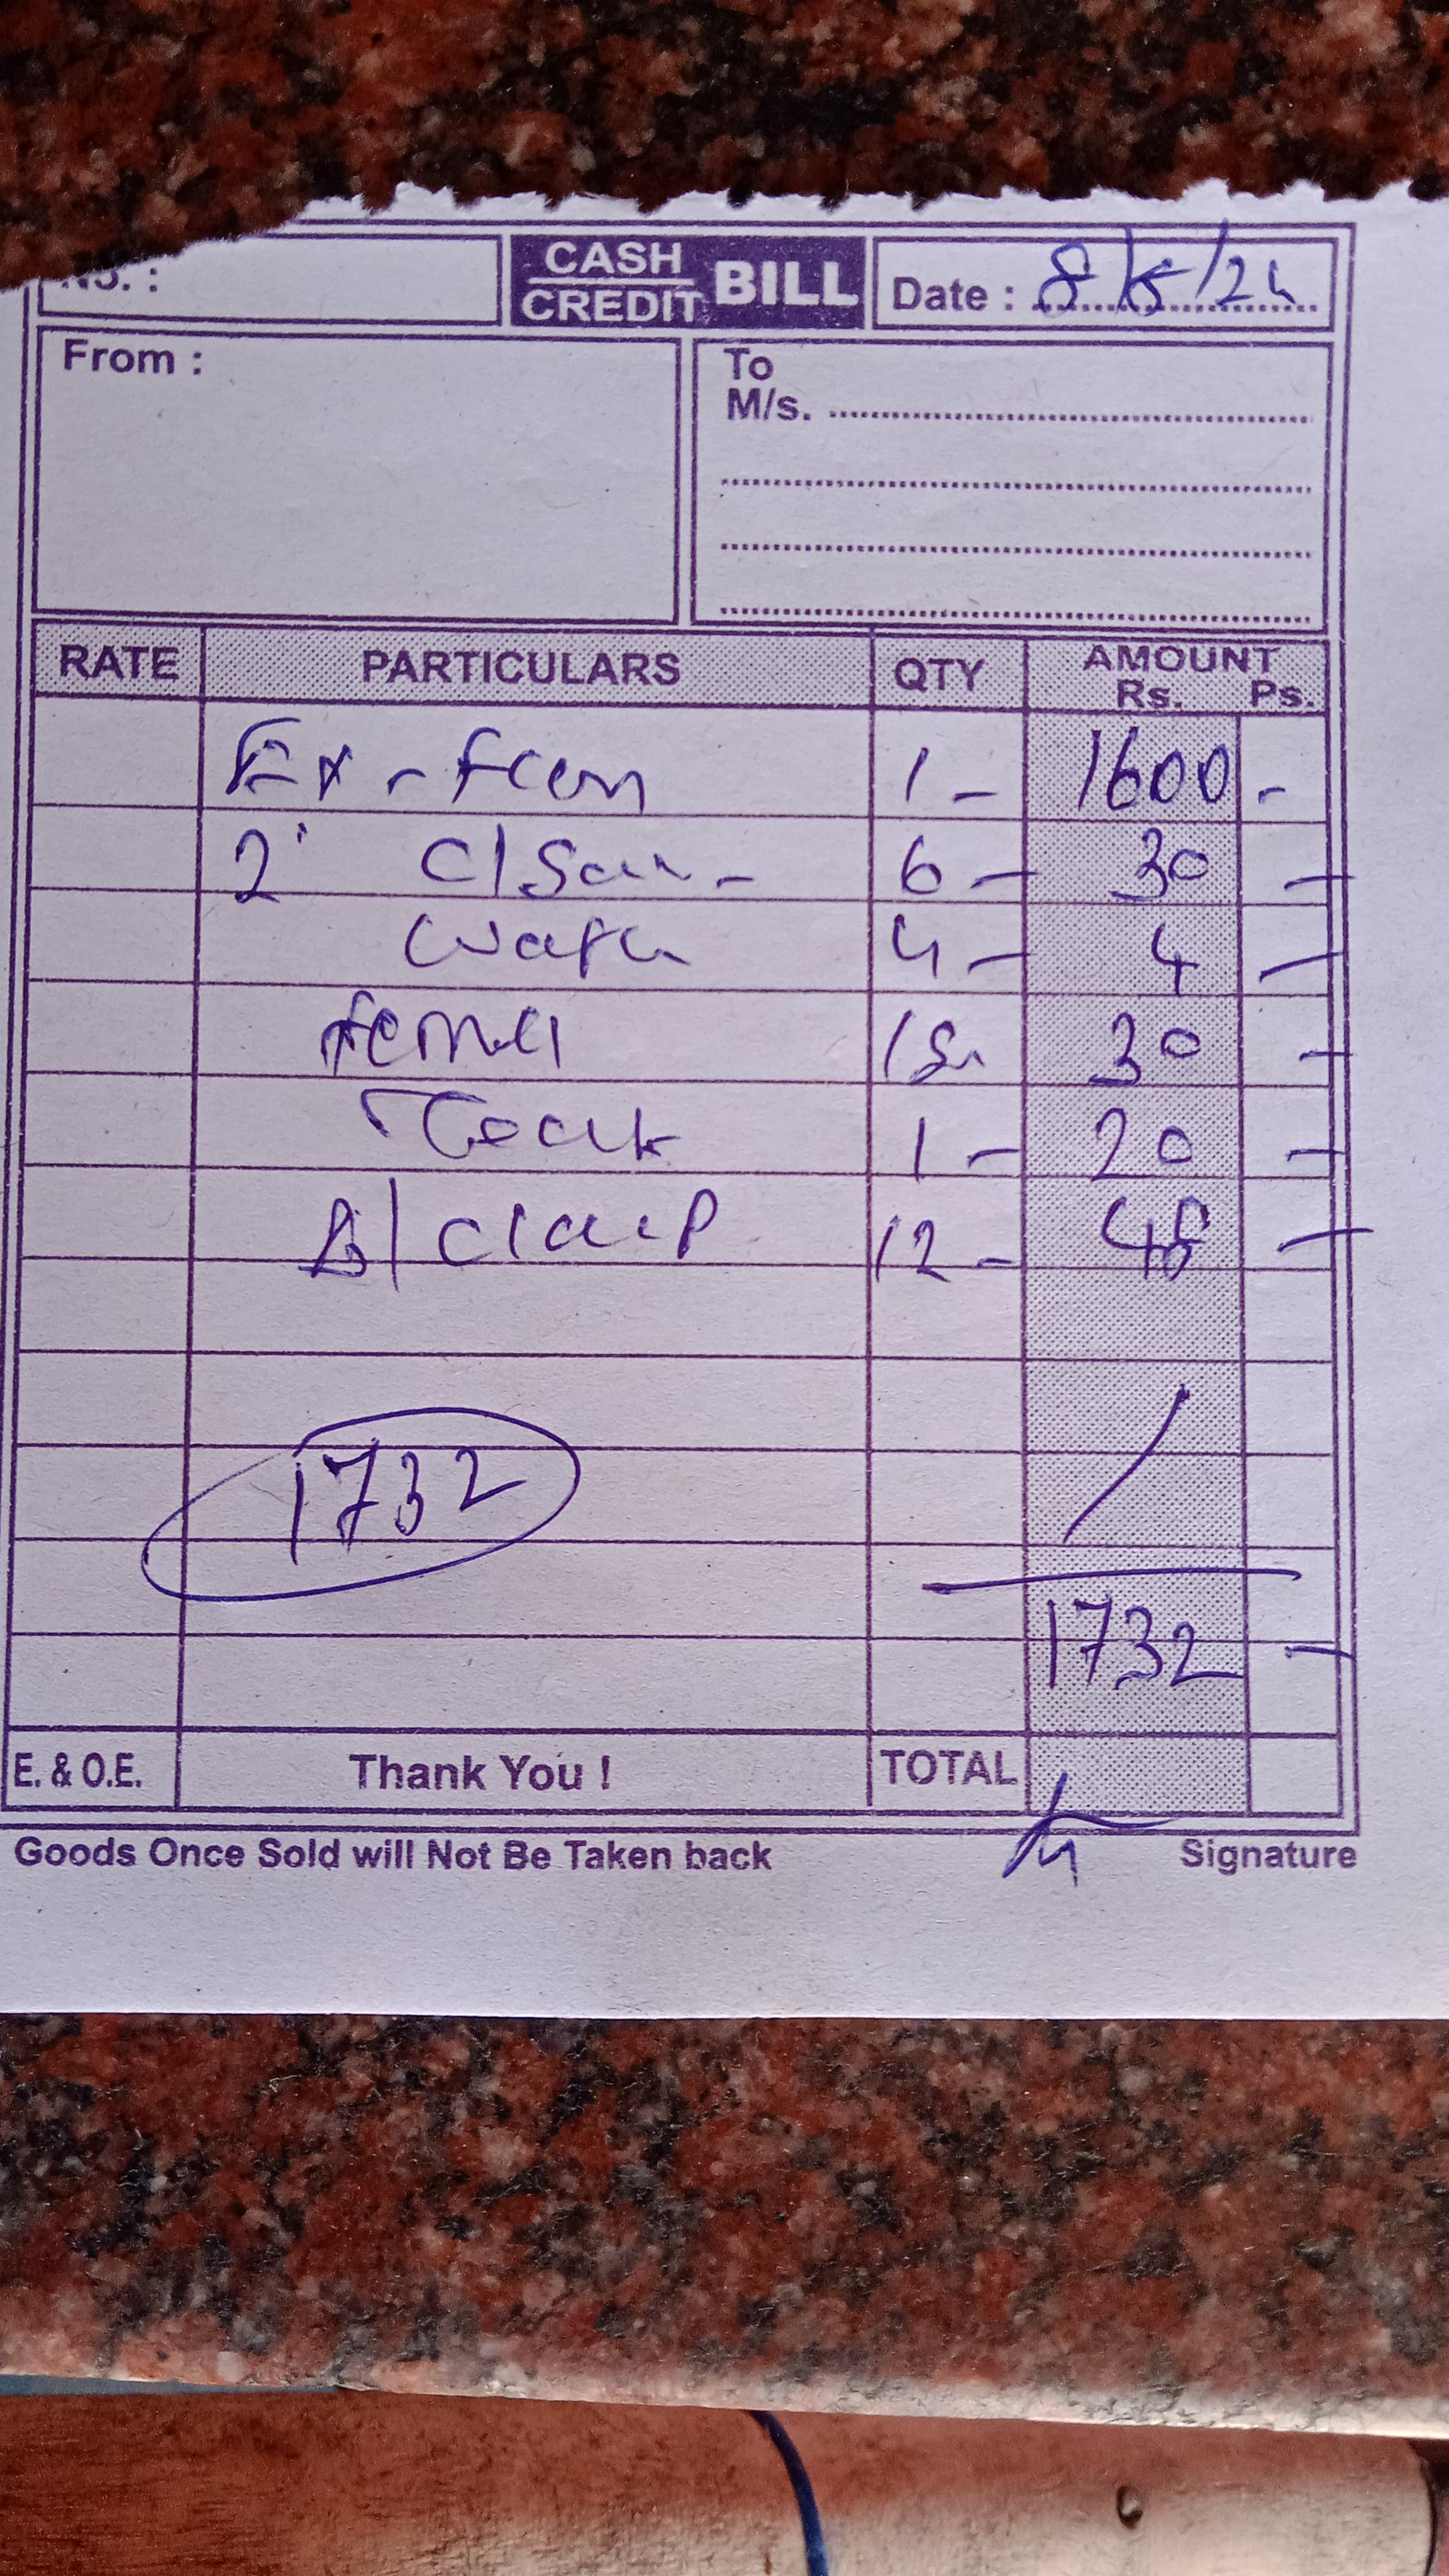 No. :
CASH
CREDIT BILL
Date : 8/5/24
From :
To
M/s.
RATE PARTICULARS QTY AMOUNT
Rs. Ps.
Ex - 1 - 1600 -
2" C/ 6 - 30 -
4 - 4 -
30 -
1 - 20 -
B/ 12 - 48 -
1732
1732 -
E. & O.E. Thank You ! TOTAL
Goods Once Sold will Not Be Taken back Signature